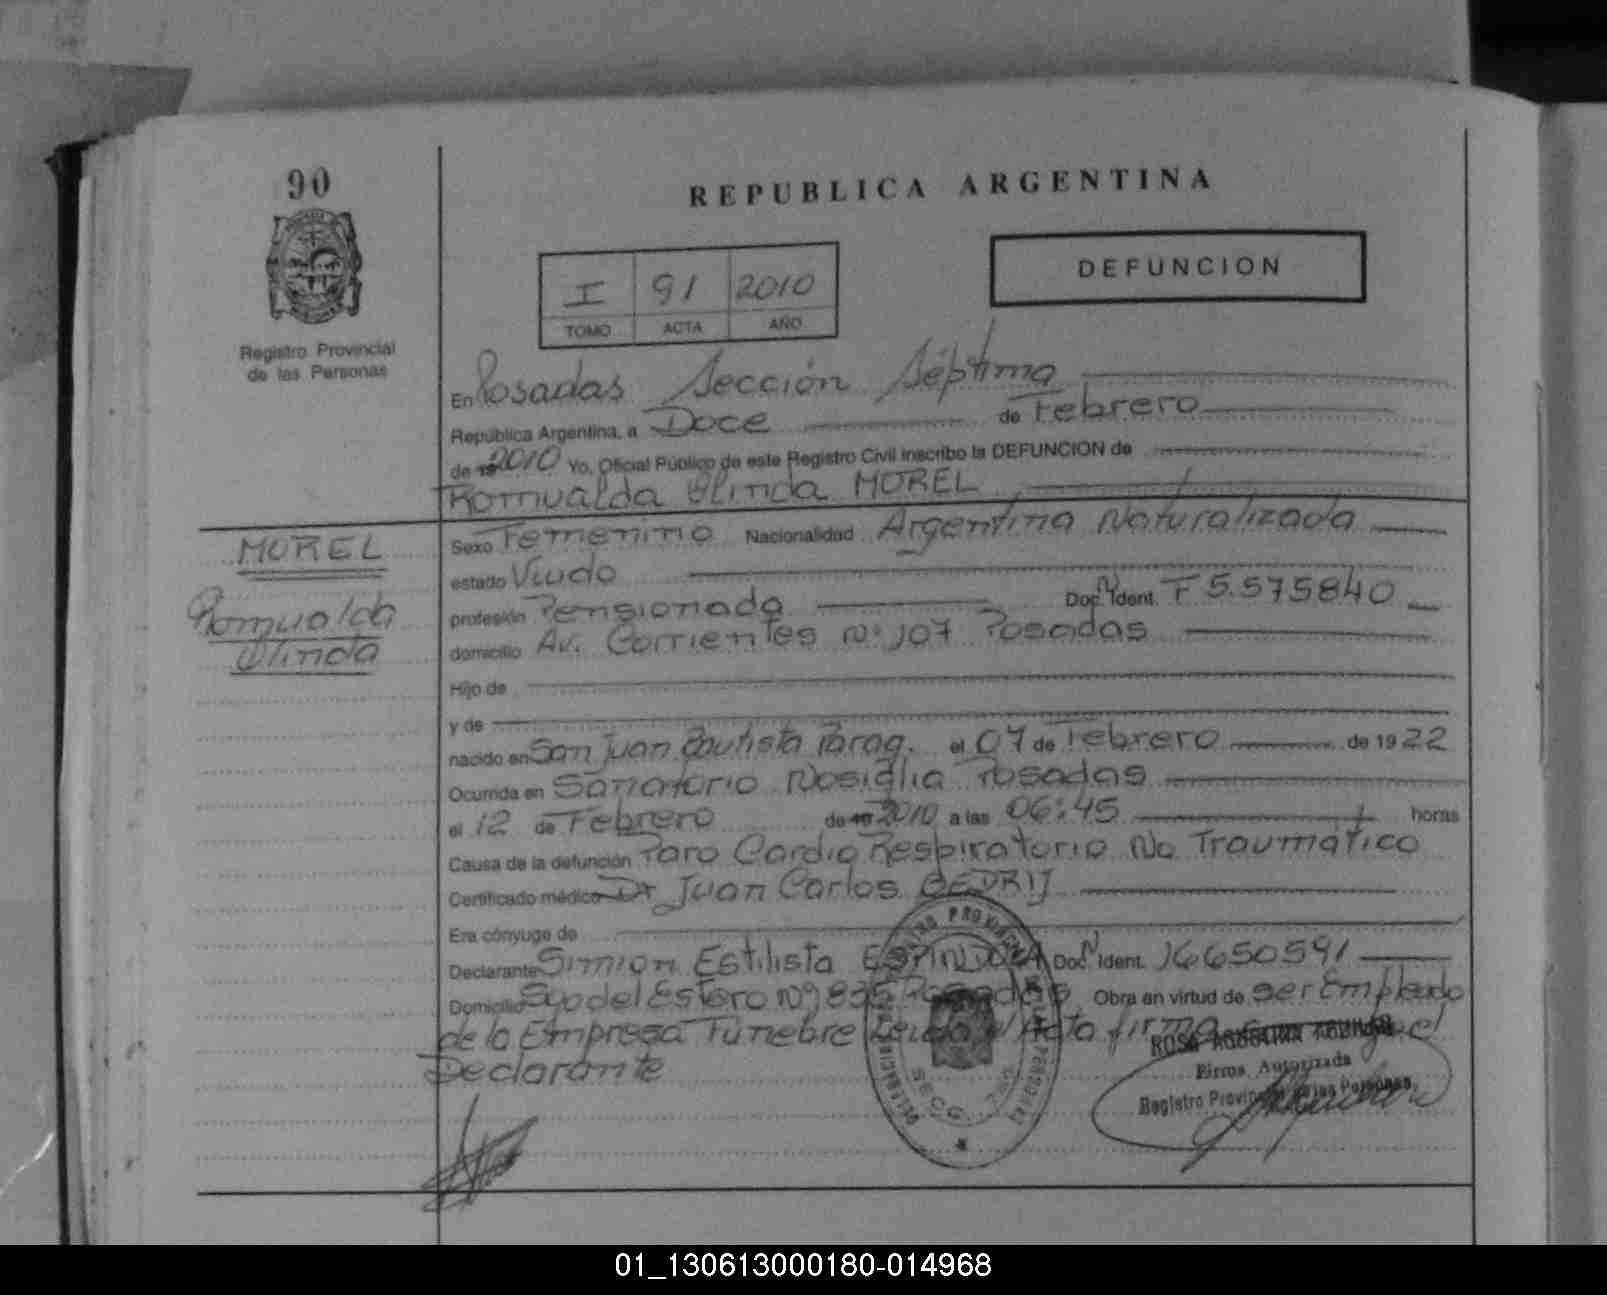 90
REPUBLICA ARGENTINA
DEFUNCION
I 91 2010
TOMO ACTA AÑO
Registro Provincial
de las Personas
En Posadas Sección Séptima
República Argentina, a Doce de Febrero
de 19 2010 Yo, Oficial Público de este Registro Civil inscribo la DEFUNCION de
Romualda Olinda MOREL
MOREL
Romualda
Olinda
Sexo Femenino Nacionalidad Argentina Naturalizada
estado Viudo
profesión Pensionada Doc. N Ident. F 5.575840
domicilio Av. Corrientes Nº 107 Posadas
Hijo de
y de
nacido en San Juan Bautista Parag. el 07 de Febrero de 1922
Ocurrida en Sanatorio Nosiglia Posadas
el 12 de Febrero de 19 2010 a las 06:45 horas
Causa de la defunción Paro Cardio Respiratorio No Traumático
Certificado médico Dr Juan Carlos BEDRIJ
Era cónyuge de
Declarante Simion Estilista ESPINDOLA Doc. N Ident. 16650591
Domicilio Sgo del Estero Nº 835 Posadas Obra en virtud de ser Empleado
de la Empresa Fúnebre Leida el Acta firma el
Declarante
ROSA AGUSTINA AGUILAR
Firma Autorizada
Registro Provincial de las Personas
01_130613000180-014968